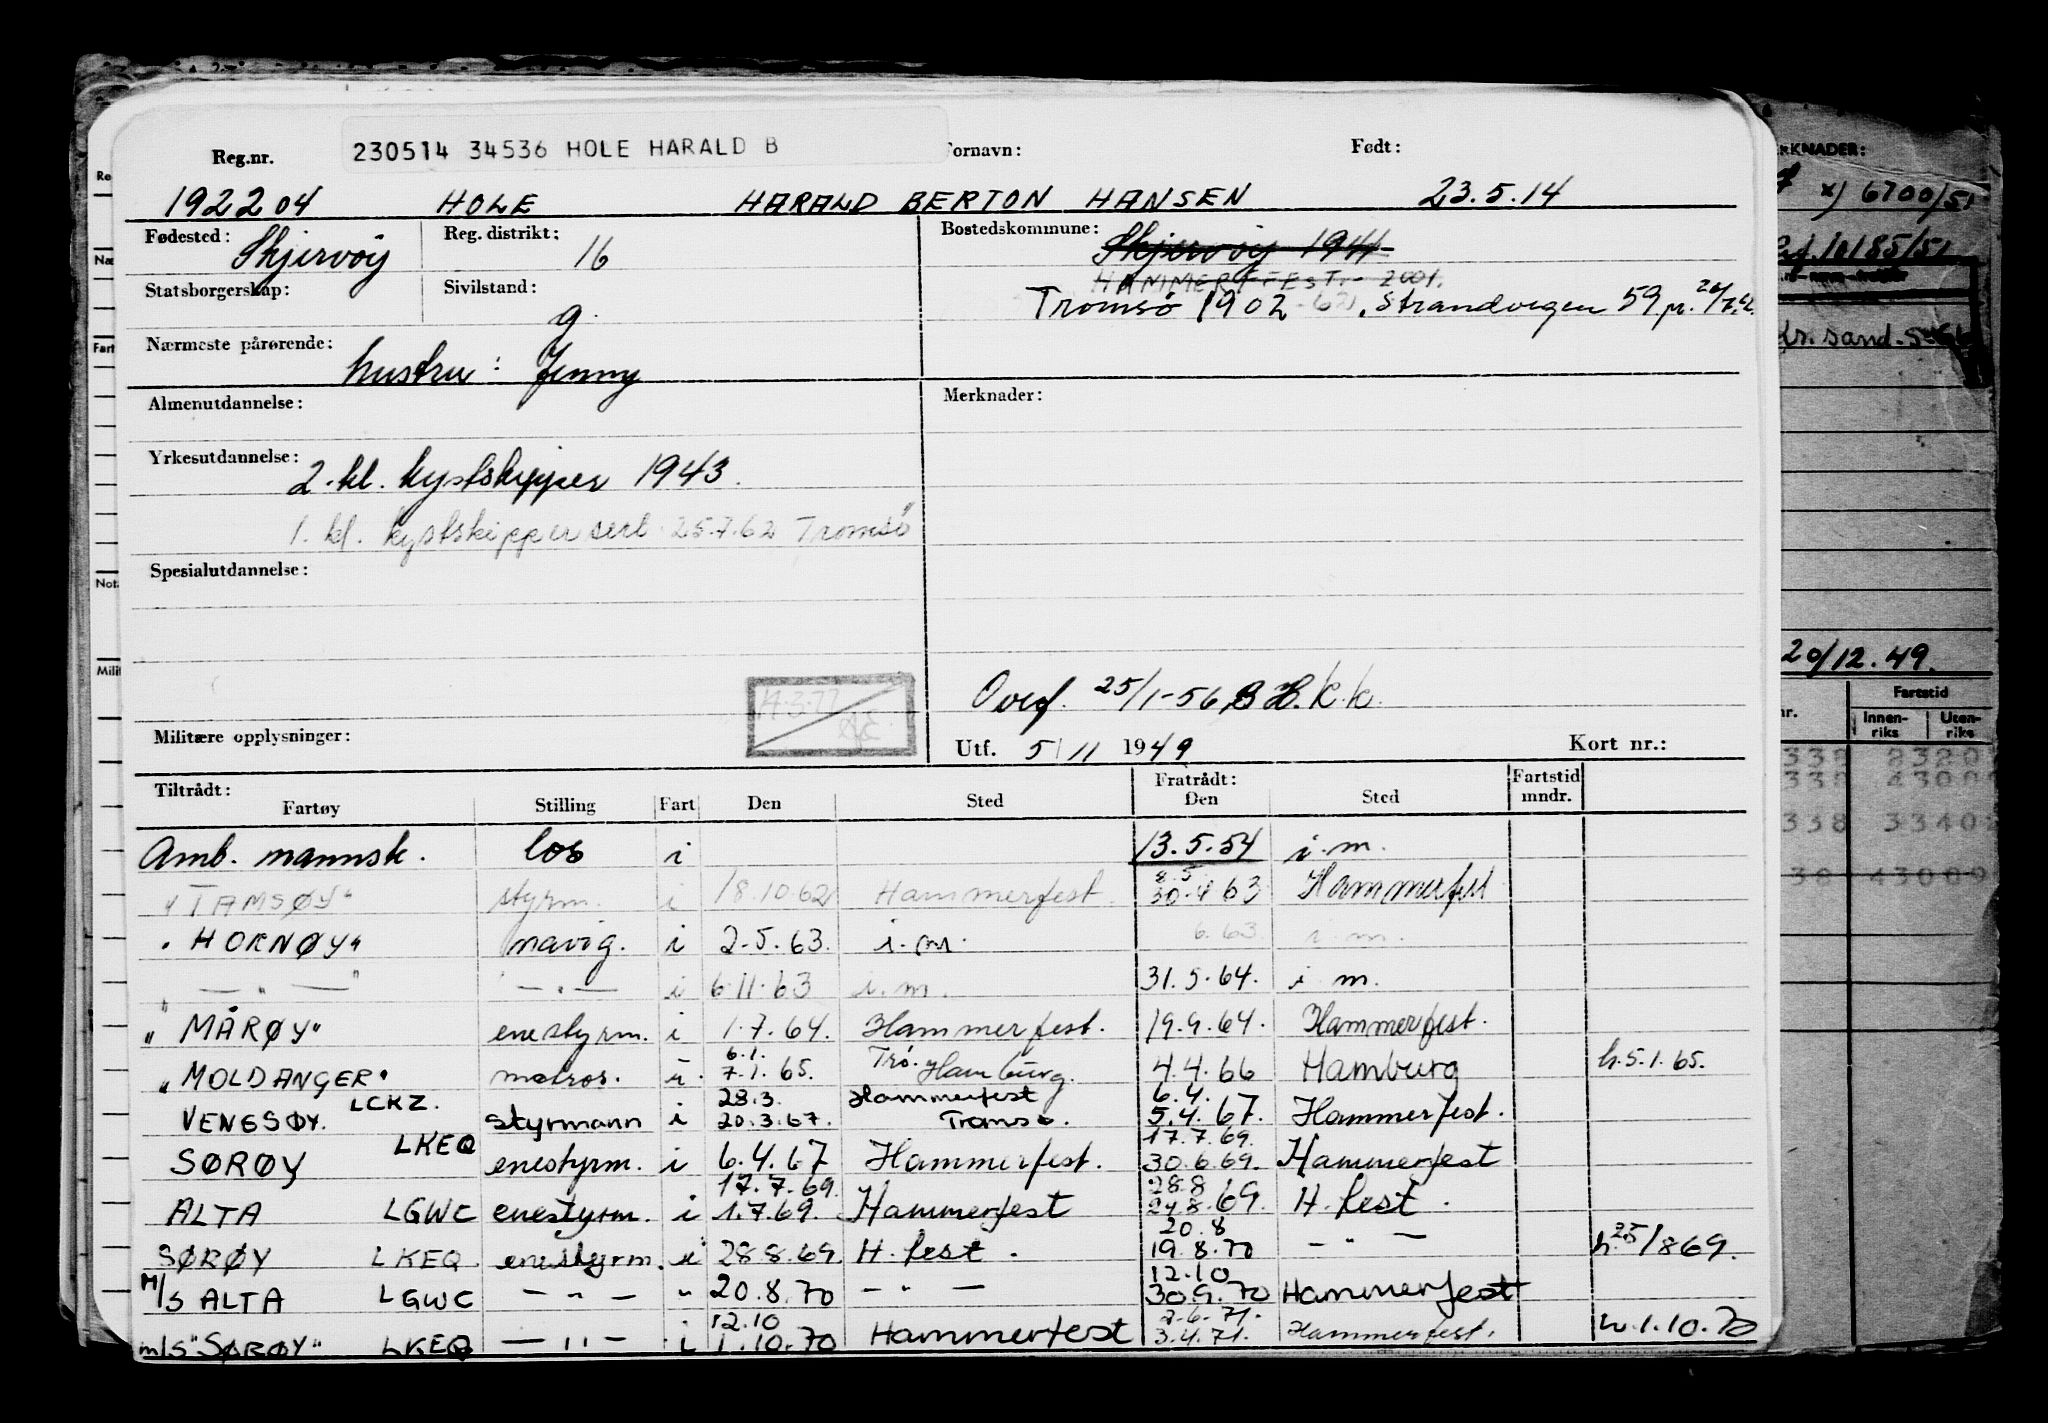 Reg.nr. 230514 34536 HOLE HARALD B Fornavn: Født:
192204 HOLE HARALD BERTON HANSEN 23.5.14
Fødested: Skjervöy Reg. distrikt: 16 Bostedskommune: Skjervöy 1941
HAMMERFEST - 2001.
Statsborgerskap: Sivilstand: g. Tromsø 1902 , Strandvegen 59
Nærmeste pårørende: hustru: Jenny
Almenutdannelse: Merknader:
Yrkesutdannelse: 2. kl. kystskipper 1943.
1. kl. kystskippersert 25.7.62 Tromsö
Spesialutdannelse:
Overf. 25/1-56
Militære opplysninger: Utf. 5/11 1949 Kort nr.:
Tiltrådt: Fratrådt: Fartstid
Fartøy Stilling Fart Den Sted Den Sted mndr.
Amb. mannsk. los i 13.5.54 i.m.
8.5
"TAMSØY" styrm. i 18.10.62 Hammerfest 30.4.63 Hammerfest
"HORNØY" navig. i 2.5.63. i.m. 6.63. i.m.
" — " — " — " — i 6.11.63 i.m. 31.5.64. i m.
"MÅRØY" enestyrm. i 1.7.64. Hammerfest. 19.9.64. Hammerfest.
6.1. Trø.
"MOLDANGER" matros. u. 7.1.65. Hamburg. 4.4.66 Hamburg h.5.1.65.
LCKZ. 28.3. Hammerfest 6.4.
VENGSØY. styrmann i 20.3.67. Tromsø. 5.4.67. Hammerfest.
17.7.69.
SØRØY LKEQ enestyrm. i 6.4.67 Hammerfest. 30.6.69. Hammerfest
17.7.69. 28.8
ALTA LGWC enestyrm. i 1.7.69. Hammerfest 24.8.69. H.fest.
20.8
SØRØY LKEQ enestyrm. i 28.8.69 H.fest. 19.8.70 — " — h.25/869.
12.10
M/S ALTA LGWC — " — " 20.8.70 — " — 30.9.70 Hammerfest
12.10 2.6.71.
m/S "SØRØY" LKEQ — " — i 1.10.70 Hammerfest 3.4.71. Hammerfest. h.1.10.70
MERKNADER:
x) 6700/51
10185/51
Kr.sand.
20/12.49.
Fartstid
nr. Innen-riks Uten-riks
338 2320
338 4300
338 3340
38 4300